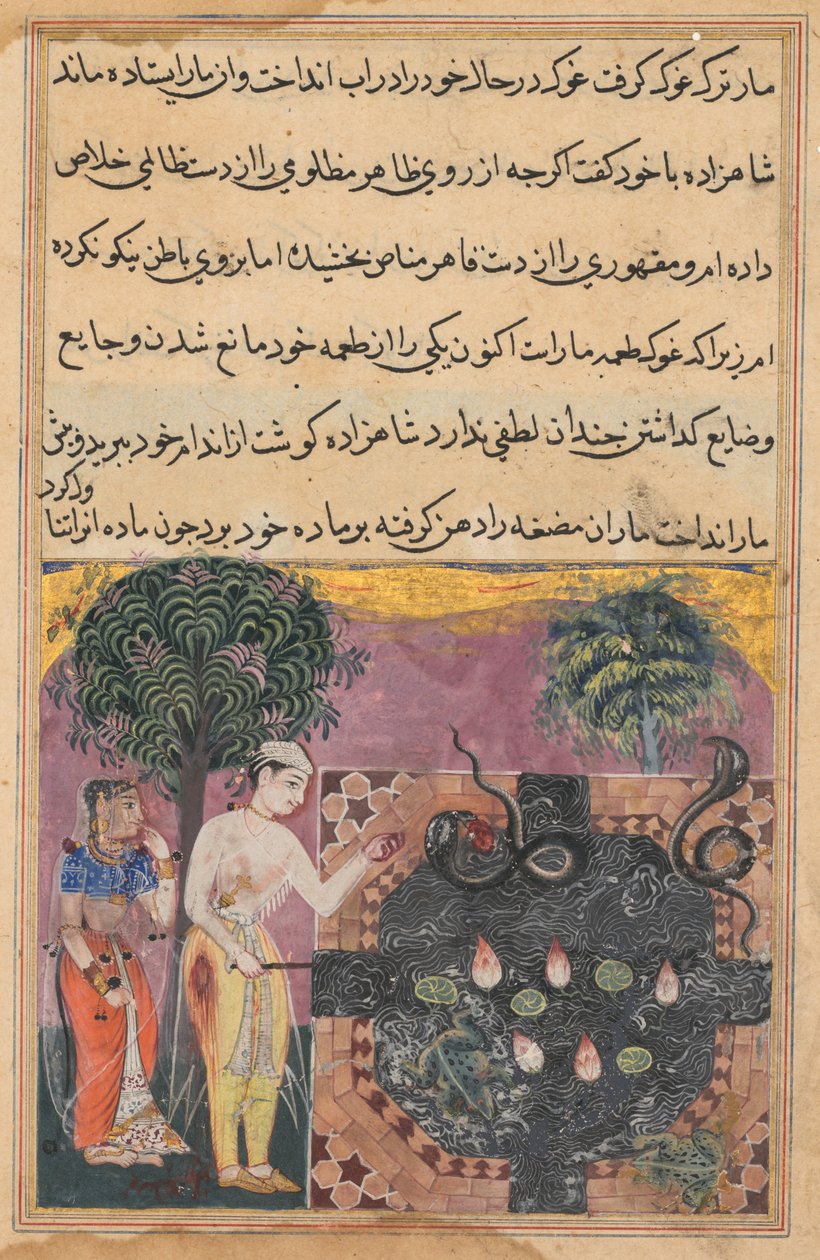 مار ترک غوک کرفت غوک در حال خود را در اب انداخت وان مار ایستاده ماند
شاهزاده با خود کفت اکرجه از روی ظاهر مظلومی را از دست ظالمی خلاص
داده ام و مقهوری را از دست قاهر مناص بخشیده اما بروی باطن نیکو نکرده
ام زیرا که غوک طعمه مار است اکنون یکی را از طعمه خود مانع شدن و جایع
وضایع کداشتن جندان لطفی ندارد شاهزاده کوشت از اندام خود ببرید و پیش
مار انداخت ماران مضغه را دهن کرفته بر ماده خود برد جون ماده انرا تنا
ول کرد